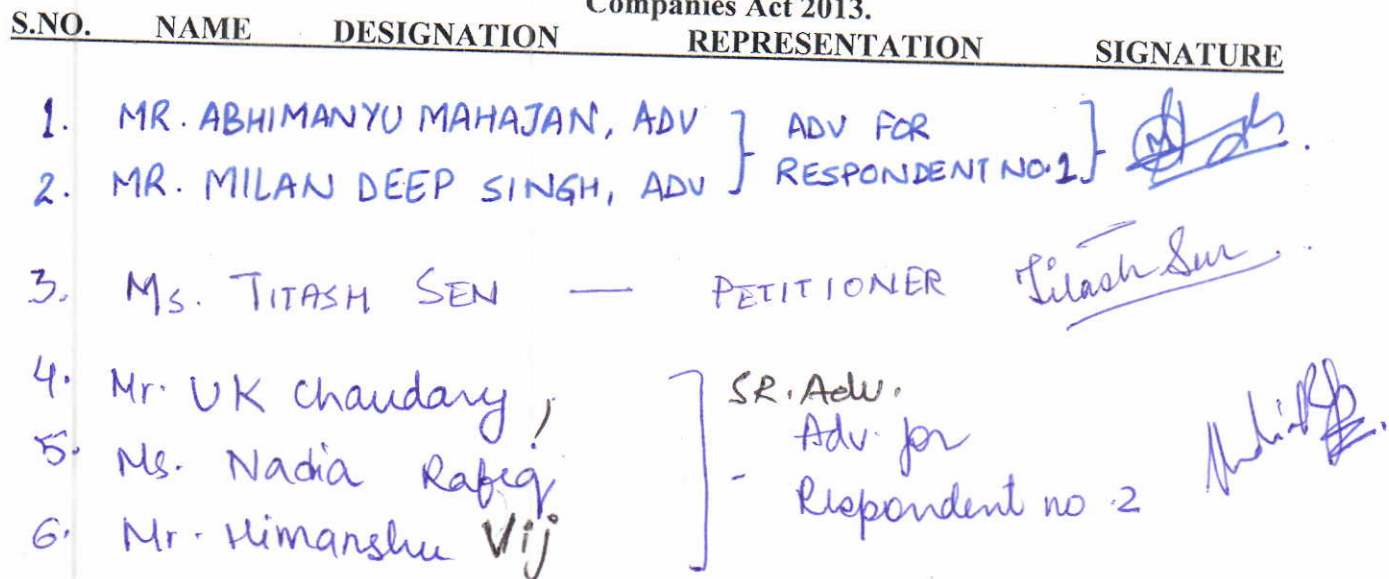 Companies Act 2013.
S.NO. NAME DESIGNATION REPRESENTATION SIGNATURE
1. MR. ABHIMANYU MAHAJAN, ADV ADV FOR
2. MR. MILAN DEEP SINGH, ADV RESPONDENT NO.1
3. Ms. TITASH SEN — PETITIONER Titash Sen
4. Mr. UK Chaudary, SR. Adv.
5. Ms. Nadia Rafiq Adv. for
6. Mr. Himanshu Vij Respondent no 2